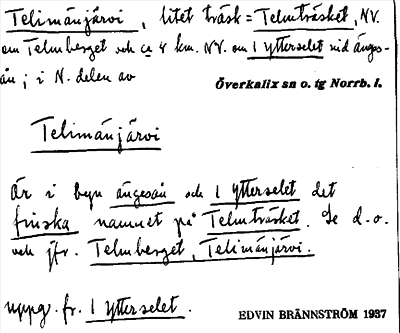 Telimänjärvi, litet träsk = Telmträsket, NV.
om Telmberget och ca 4 km. NV. om 1 Ytterselet vid änges-
ån ; i N. delen av
Överkalix sn o. tg Norrb. l.
Telimänjärvi
Är i byn ängesån och 1 Ytterselet det
finska namnet på Telmträsket. Se d. o.
och jfr. Telmberget, Telimänjärvi.
uppg. fr. 1 Ytterselet.
EDVIN BRÄNNSTRÖM 1937